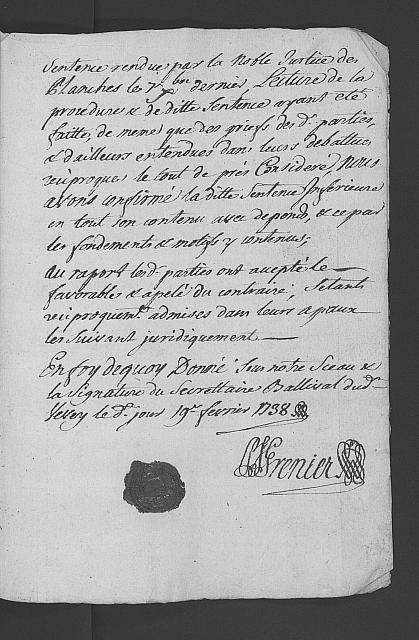 Sentence rendue par la Noble Justice des
Planches le 7.e Xbre dernier, Lecture de la
procedure & de ditte Sentence ayant été
faitte, de meme que des griefs des d.s parties,
& d'ailleurs entendues dans leurs debattues
reciproques le tout de près Consideré, Nous
avons confirmé la ditte Sentence Inferieure
en tout son contenu avec depends, & ce par
les fondements & motifs y contenus;
Au raport les d.s parties ont acepté le
favorables & apelé du contraire; Setants
reciproquem.t admises dans leurs apaux
les suivant juridiquement
En foy dequoy Donné Sous notre Sceau &
la Signature du Secrettaire Ballival dud.t
Vevey le d.t jour 19.e fevrier 1738
Grenier